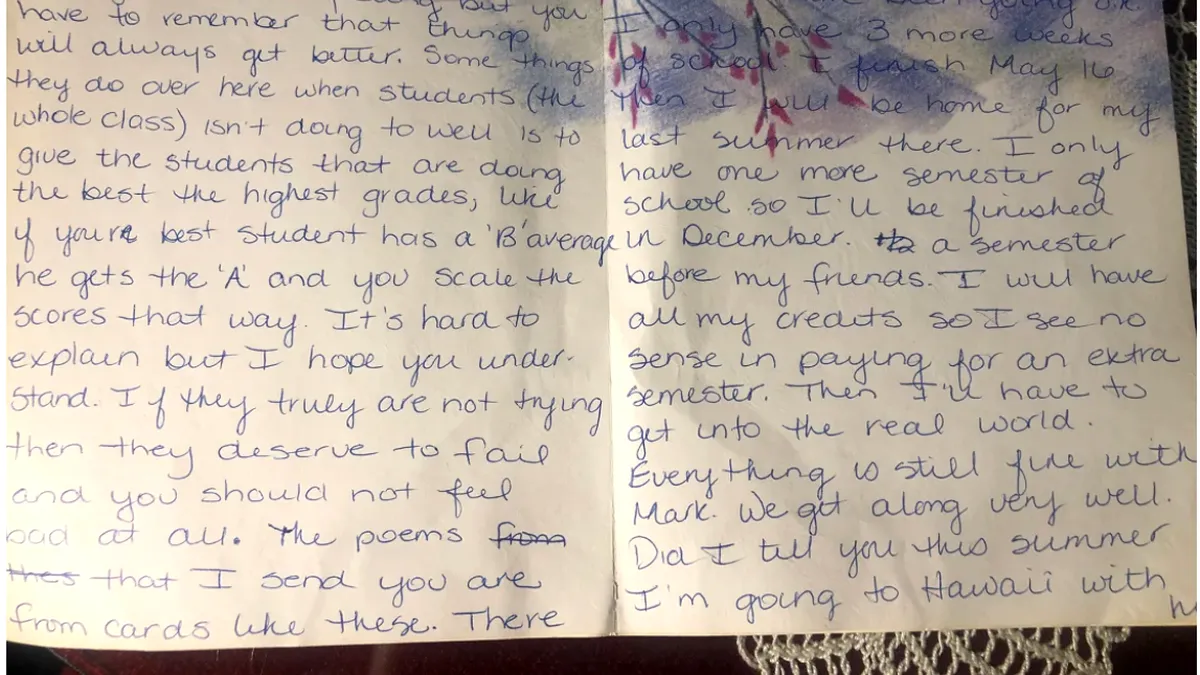 but you
have to remember that things
will always get better. Some things
they do over here when students (the
whole class) isn't doing to well is to
give the students that are doing
the best the highest grades, like
if youre best student has a 'B' average
he gets the 'A' and you scale the
scores that way. It's hard to
explain but I hope you under-
stand. If they truly are not trying
then they deserve to fail
and you should not feel
bad at all. The poems from
thes that I send you are
from cards like these. There
I only have 3 more weeks
of school. I finish May 16
Then I will be home for my
last summer there. I only
have one more semester of
school so I'll be finished
in December. a semester
before my friends. I will have
all my credits so I see no
sense in paying for an extra
semester. Then I'll have to
get into the real world.
Everything is still fine with
Mark. We get along very well.
Did I tell you this summer
I'm going to Hawaii with